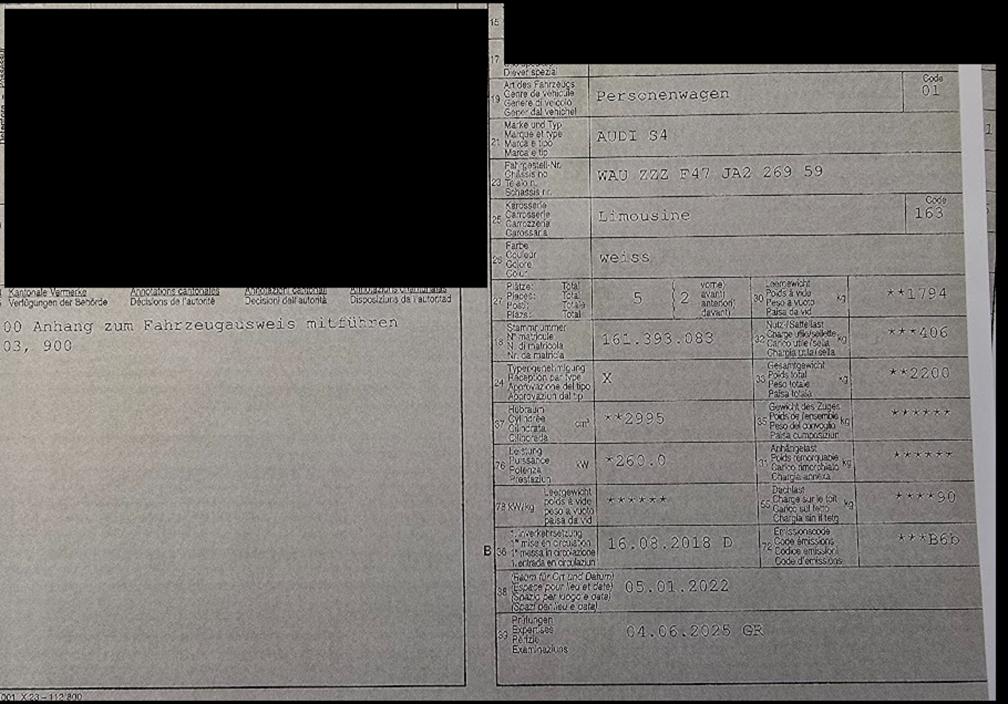 15
17
Diever spezial
19 Art des Fahrzeugs
Genre de véhicule
Genere di veicolo
Gener dal vehichel
Personenwagen
Code
01
21 Marke und Typ
Marque et type
Marca e tipo
Marca e tip
AUDI S4
23 Fahrgestell-Nr.
Châssis no
Telaio n.
Schassis nr.
WAU ZZZ F47 JA2 269 59
25 Karosserie
Carrosserie
Carrozzeria
Carossaria
Limousine
Code
163
26 Farbe
Couleur
Colore
Colur
weiss
27 Plätze: Total
Places: Total
Posti: Totale
Plazs: Total
5
( 2
vorne)
avant)
anteriori)
davant)
30 Leergewicht
Poids à vide
Peso a vuoto
Paisa da vid
kg
**1794
18 Stammnummer
N° matricule
N. di matricola
Nr. da matricla
161.393.083
32 Nutz-/Sattellast
Charge utile/sellette
Carico utile/sella
Chargia utila/sella
kg
***406
24 Typengenehmigung
Réception par type
Approvazione del tipo
Approvaziun dal tip
X
33 Gesamtgewicht
Poids total
Peso totale
Paisa totala
kg
**2200
37 Hubraum
Cylindrée
Cilindrata
Cilindrada
cm³
**2995
35 Gewicht des Zuges
Poids de l'ensemble
Peso del convoglio
Paisa cumposiziun
kg
******
76 Leistung
Puissance
Potenza
Prestaziun
kW
*260.0
31 Anhängelast
Poids remorquable
Carico rimorchiato
Chargia annexa
kg
******
78 kW/kg
Leergewicht
poids à vide
peso a vuoto
paisa da vid
******
55 Dachlast
Charge sur le toit
Carico sul tetto
Chargia sin il tetg
kg
****90
B 36 1. Inverkehrsetzung
1re mise en circulation
1a messa in circolazione
1. entrada en circulaziun
16.08.2018 D
72 Emissionscode
Code émissions
Codice emissioni
Code d'emissions
***B6b
38 (Raum für Ort und Datum)
(Espace pour lieu et date)
(Spazio per luogo e data)
(Spazi per lieu e data)
05.01.2022
39 Prüfungen
Expertises
Perizie
Examinaziuns
04.06.2025 GR
Kantonale Vermerke
Verfügungen der Behörde
Annotations cantonales
Décisions de l'autorité
Annotazioni cantonali
Decisioni dell'autorità
Annotaziuns chantunalas
Disposiziuns da l'autoritad
00 Anhang zum Fahrzeugausweis mitführen
03, 900
001 X.23 – 112 800